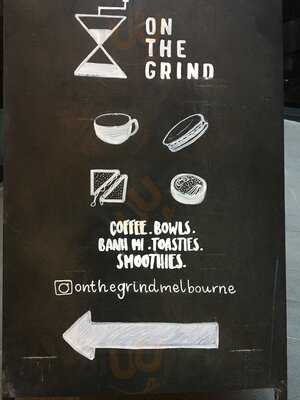 ON
THE
GRIND
COFFEE. BOWLS.
BANH MI. TOASTIES.
SMOOTHIES.
onthegrindmelbourne